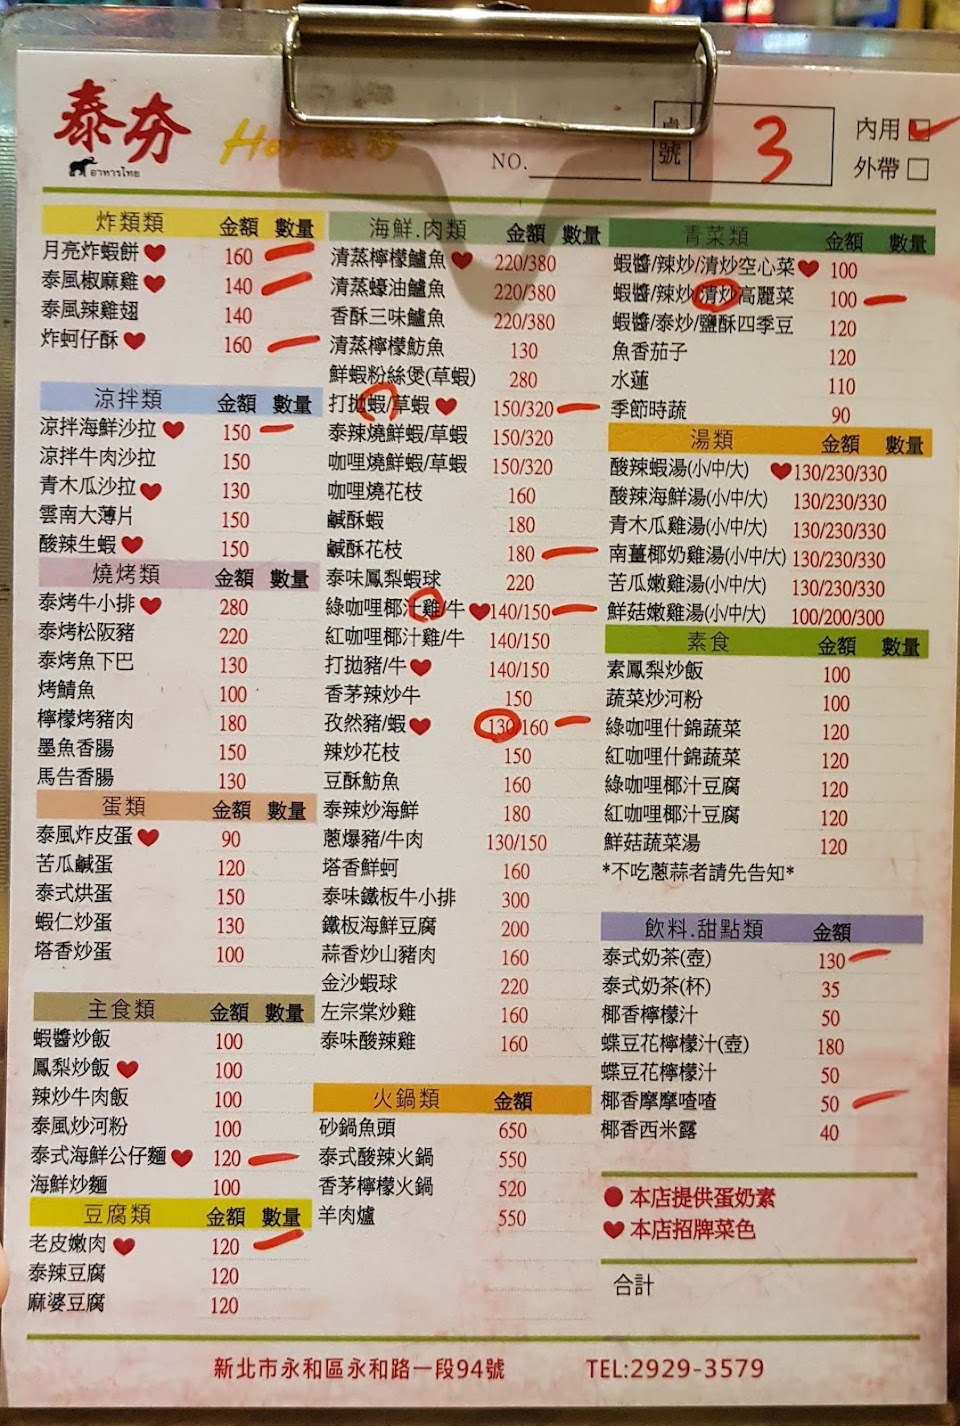 泰夯
อาหารไทย
Hot
NO.
號
3
內用
外帶
炸類類 金額 數量
月亮炸蝦餅 160
泰風椒麻雞 140
泰風辣雞翅 140
炸蚵仔酥 160
涼拌類 金額 數量
涼拌海鮮沙拉 150
涼拌牛肉沙拉 150
青木瓜沙拉 130
雲南大薄片 150
酸辣生蝦 150
燒烤類 金額 數量
泰烤牛小排 280
泰烤松阪豬 220
泰烤魚下巴 130
烤鯖魚 100
檸檬烤豬肉 180
墨魚香腸 150
馬告香腸 130
蛋類 金額 數量
泰風炸皮蛋 90
苦瓜鹹蛋 120
泰式烘蛋 150
蝦仁炒蛋 130
塔香炒蛋 100
主食類 金額 數量
蝦醬炒飯 100
鳳梨炒飯 100
辣炒牛肉飯 100
泰風炒河粉 100
泰式海鮮公仔麵 120
海鮮炒麵 100
豆腐類 金額 數量
老皮嫩肉 120
泰辣豆腐 120
麻婆豆腐 120
海鮮.肉類 金額 數量
清蒸檸檬鱸魚 220/380
清蒸蠔油鱸魚 220/380
香酥三味鱸魚 220/380
清蒸檸檬魴魚 130
鮮蝦粉絲煲(草蝦) 280
打拋蝦/草蝦 150/320
泰辣燒鮮蝦/草蝦 150/320
咖哩燒鮮蝦/草蝦 150/320
咖哩燒花枝 160
鹹酥蝦 180
鹹酥花枝 180
泰味鳳梨蝦球 220
綠咖哩椰汁雞/牛 140/150
紅咖哩椰汁雞/牛 140/150
打拋豬/牛 140/150
香茅辣炒牛 150
孜然豬/蝦 130/160
辣炒花枝 150
豆酥魴魚 160
泰辣炒海鮮 180
蔥爆豬/牛肉 130/150
塔香鮮蚵 160
泰味鐵板牛小排 300
鐵板海鮮豆腐 200
蒜香炒山豬肉 160
金沙蝦球 220
左宗棠炒雞 160
泰味酸辣雞 160
火鍋類 金額
砂鍋魚頭 650
泰式酸辣火鍋 550
香茅檸檬火鍋 520
羊肉爐 550
青菜類 金額 數量
蝦醬/辣炒/清炒空心菜 100
蝦醬/辣炒/清炒高麗菜 100
蝦醬/泰炒/鹽酥四季豆 120
魚香茄子 120
水蓮 110
季節時蔬 90
湯類 金額 數量
酸辣蝦湯(小/中/大) 130/230/330
酸辣海鮮湯(小/中/大) 130/230/330
青木瓜雞湯(小/中/大) 130/230/330
南薑椰奶雞湯(小/中/大) 130/230/330
苦瓜嫩雞湯(小/中/大) 130/230/330
鮮菇嫩雞湯(小/中/大) 100/200/300
素食 金額 數量
素鳳梨炒飯 100
蔬菜炒河粉 100
綠咖哩什錦蔬菜 120
紅咖哩什錦蔬菜 120
綠咖哩椰汁豆腐 120
紅咖哩椰汁豆腐 120
鮮菇蔬菜湯 120
*不吃蔥蒜者請先告知*
飲料.甜點類 金額
泰式奶茶(壺) 130
泰式奶茶(杯) 35
椰香檸檬汁 50
蝶豆花檸檬汁(壺) 180
蝶豆花檸檬汁 50
椰香摩摩喳喳 50
椰香西米露 40
本店提供蛋奶素
本店招牌菜色
合計
新北市永和區永和路一段94號 TEL:2929-3579